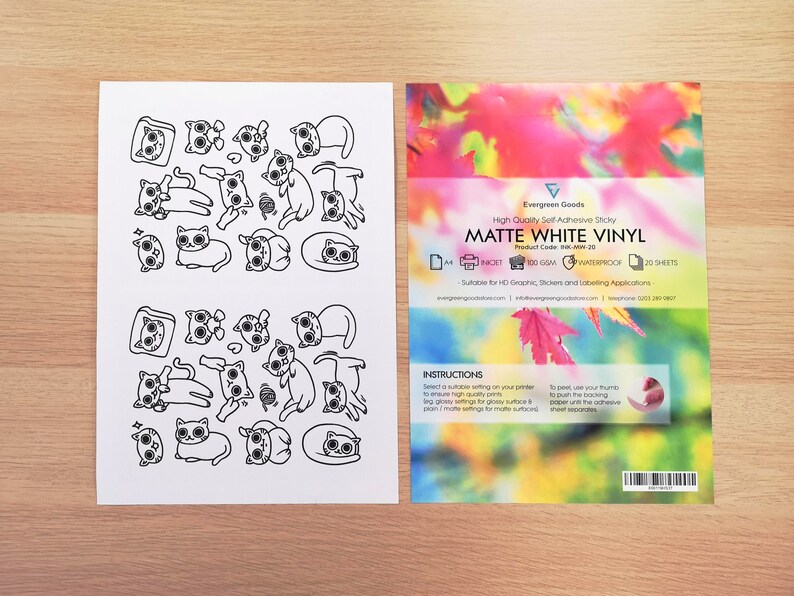 Evergreen Goods
High Quality Self-Adhesive Sticky
MATTE WHITE VINYL
Product Code: INK-MW-20
A4 INKJET 100 GSM WATERPROOF 20 SHEETS
- Suitable for HD Graphic, Stickers and Labelling Applications -
evergreengoodsstore.com | info@evergreengoodsstore.com | telephone: 0203 289 0897
INSTRUCTIONS
Select a suitable setting on your printer
to ensure high quality prints
(eg. glossy settings for glossy surface &
plain / matte settings for matte surfaces).
To peel, use your thumb
to push the backing
paper until the adhesive
sheet separates.